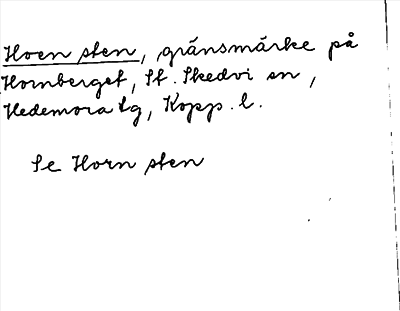 Hoen sten, gränsmärke på
Hornberget, St. Skedvi sn,
Hedemora tg, Kopp. l.
Se Horn sten